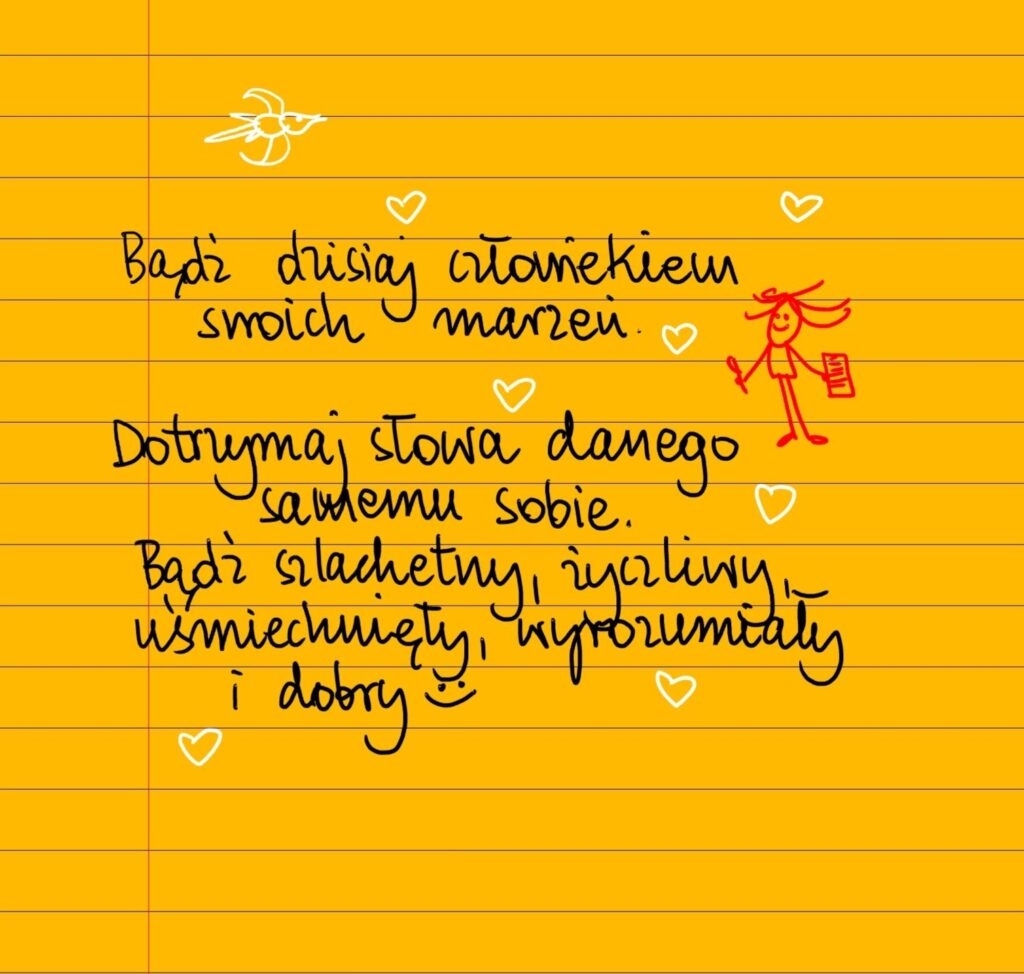 Bądź dzisiaj człowiekiem
swoich marzeń.
Dotrzymaj słowa danego
samemu sobie.
Bądź szlachetny, życzliwy,
uśmiechnięty, wyrozumiały
i dobry